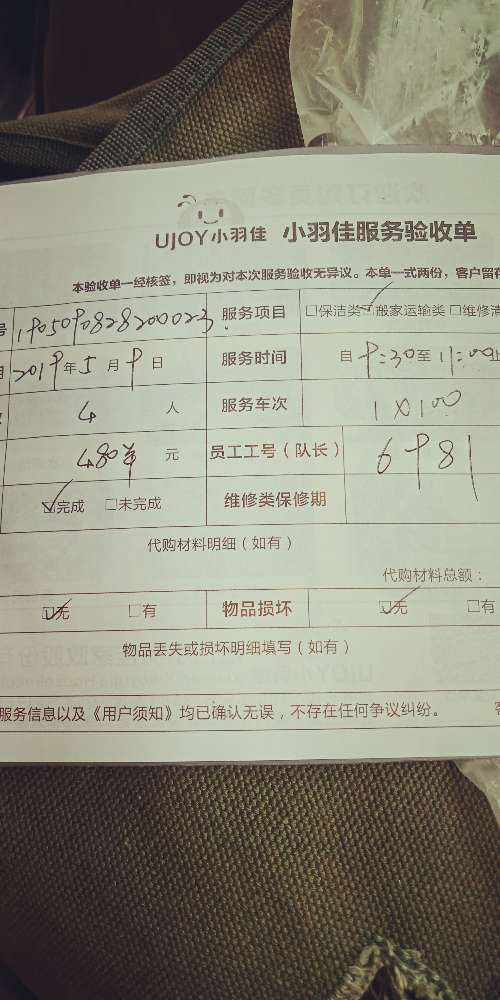 UJOY小羽佳 小羽佳服务验收单
本验收单一经核签，即视为对本次服务验收无异议。本单一式两份，客户留存
号 1905090828200023. 服务项目 □保洁类☑搬家运输类□维修清
2019年5月9日 服务时间 自9:30至11:00止
4 人 服务车次 1×100
480羊 元 员工工号（队长） 6981
☑完成 □未完成 维修类保修期
代购材料明细（如有）
代购材料总额：
☑无 □有 物品损坏 ☑无 □有
物品丢失或损坏明细填写（如有）
服务信息以及《用户须知》均已确认无误，不存在任何争议纠纷。